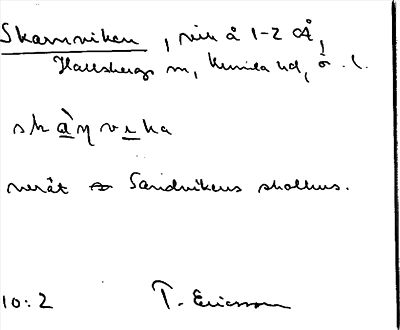 Skarnviken, vik å 1-2 Å,
Hallsbergs sn, Kumla hd, ö. l.
skàŋveka
neråt Sandvikens skolhus.
10:2 T. Ericsson